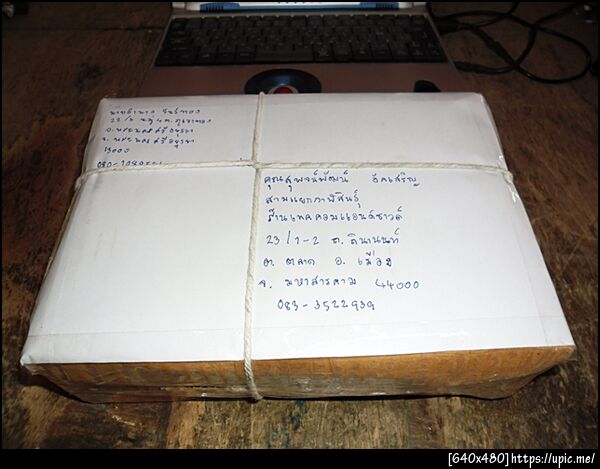 22/2
อ. พระนครศรีอยุธยา
จ. พระนครศรีอยุธยา
13000
คุณสุพจน์พัฒน์ อัคเสริญ
สามแยกกาฬสินธุ์
ร้านเทคคอมแอนด์ซาวด์
23/1-2 ถ. ถีนานนท์
ต. ตลาด อ. เมือง
จ. มหาสารคาม 44000
083-3522939
[640x480]https://upic.me/